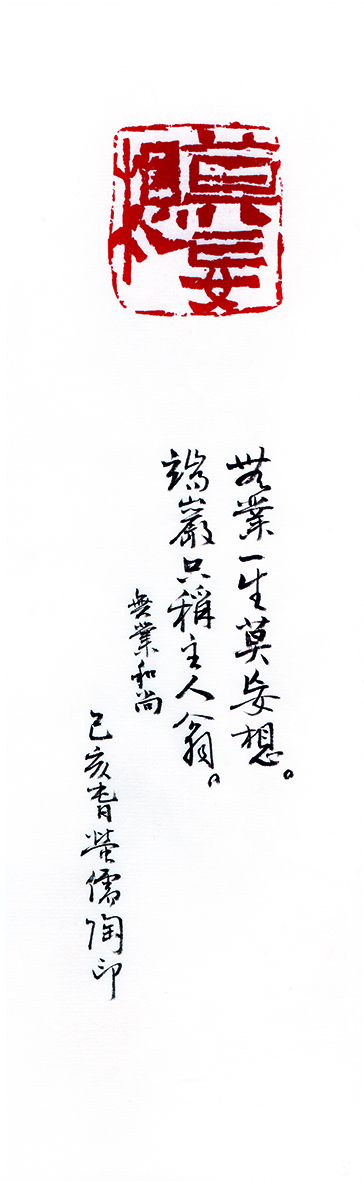 莫妄想
無業一生莫妄想。
瑞巖只稱主人翁。
無業和尚
己亥旾螢儒陶印